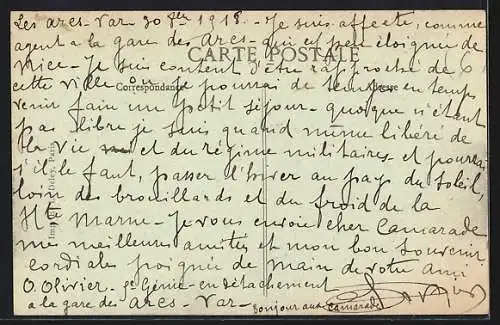 Les Arcs-Var 30 1918 - Je suis affecté, comme
agent a la gare des Arcs - qui est peu éloignée de
Nice - Je suis content d'être rapproché de
CARTE POSTALE
cette ville où je pourrai de temps en temps
Correspondance
Adresse
venir faire un petit séjour - quoique n'étant
pas libre je suis quand même libéré de
la vie et du régime militaires - et pourrai
s'il le faut, passer l'hiver au pays du soleil,
loin des brouillards et du froid de la
Hte Marne - Je vous envoie cher Camarade
mes meilleures amitiés et mon bon souvenir
cordiales poignée de main de votre ami
O. Olivier - 5e Génie - en détachement
a la gare des Arcs - Var -
Bonjour aux camarades